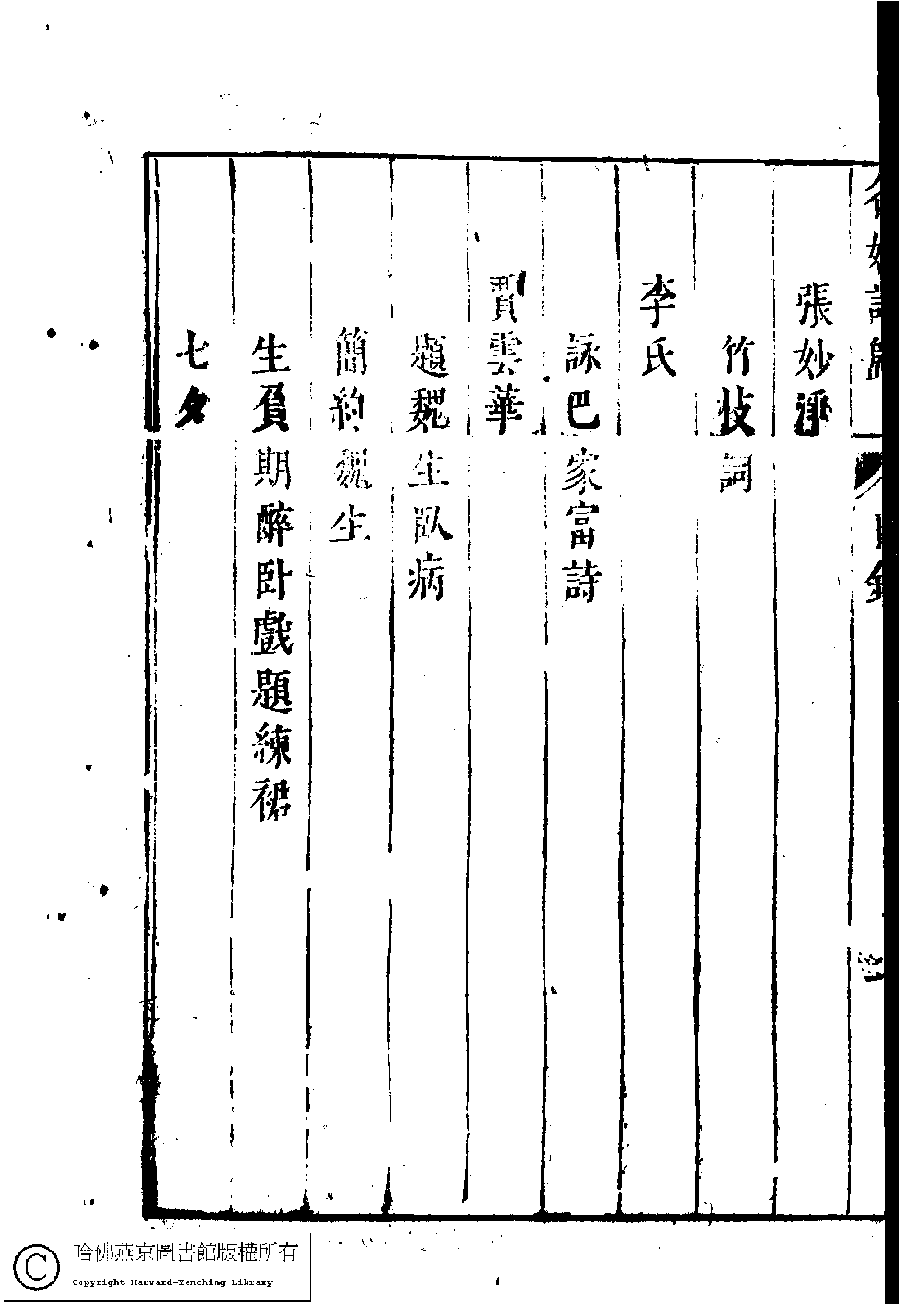 目錄
張妙淨
竹枝詞
李氏
詠巴家富詩
賈雲華
題魏生臥病
簡約魏生
生負期醉卧戲題練裙
七夕
哈佛燕京圖書館版權所有
Copyright Harvard-Yenching Library